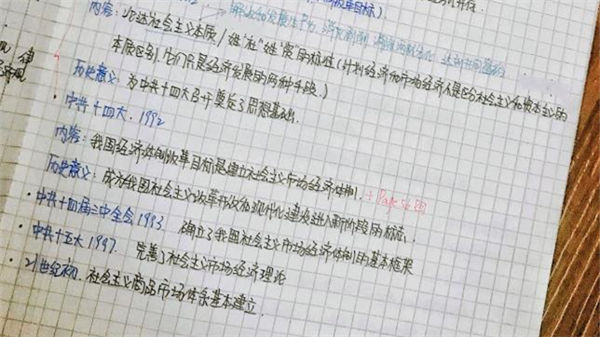 革目标)
内容:论述社会主义本质/姓"社"姓"资"的标准(计划经济和市场经济不是区分社会主义和资本主义的
本质区别,它们只是经济发展的两种手段.)
历史意义:为中共十四大召开奠定了思想基础.
·中共十四大.1992
内容:我国经济体制改革目标是建立社会主义市场经济体制.
历史意义:成为我国社会主义改革开放和现代化建设进入新阶段的标志.
·中共十四届三中全会1993 确立了我国社会主义市场经济体制的基本框架
·中共十五大1997 完善了社会主义市场经济理论
·21世纪初.社会主义商品市场体系基本建立